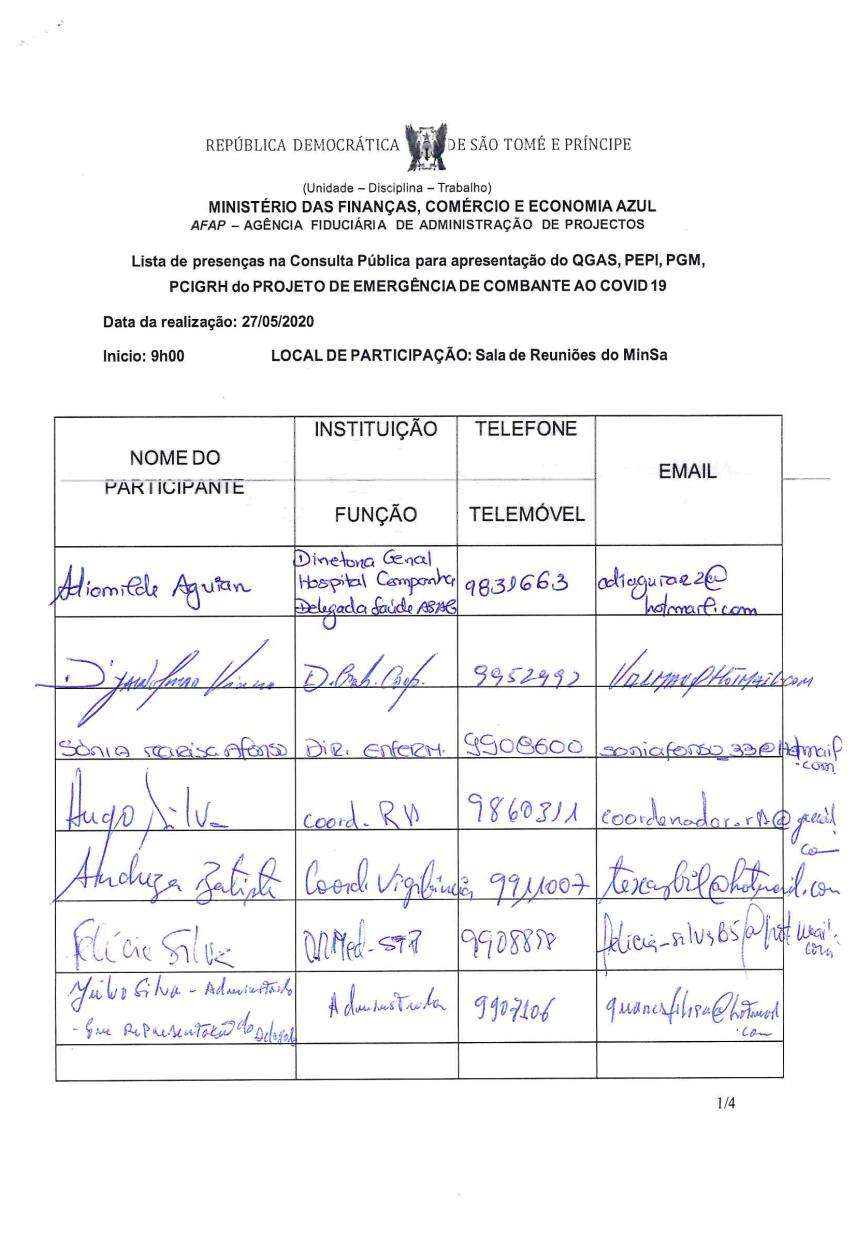 REPÚBLICA DEMOCRÁTICA DE SÃO TOMÉ E PRÍNCIPE
(Unidade – Disciplina – Trabalho)
MINISTÉRIO DAS FINANÇAS, COMÉRCIO E ECONOMIA AZUL
AFAP – AGÊNCIA FIDUCIÁRIA DE ADMINISTRAÇÃO DE PROJECTOS
Lista de presenças na Consulta Pública para apresentação do QGAS, PEPI, PGM,
PCIGRH do PROJETO DE EMERGÊNCIA DE COMBANTE AO COVID 19
Data da realização: 27/05/2020
Inicio: 9h00 LOCAL DE PARTICIPAÇÃO: Sala de Reuniões do MinSa
NOME DO
PARTICIPANTE
INSTITUIÇÃO
FUNÇÃO
TELEFONE
TELEMÓVEL
EMAIL
Adiomilde Aguiar
Diretora Geral
Hospital Campanha
Delegada Saúde
9831663
adiaguiar2@
hotmail.com
9952992
@Hotmail.com
Sónia Marisa Afonso
Dir. Enferm.
9908600
soniafonso_33@Hotmail
.com
Hugo Silva
Coord. RN
9860311
coordenador.rn@gmail
Batista
Coord. Vigilância
9911007
@hotmail.com
Felície Silva
9908898
felicia-silv
@hotmail.
com
Silva - Administrador
- Em Representação do Delegado
Administrador
9907106
@hotmail
.com
1/4